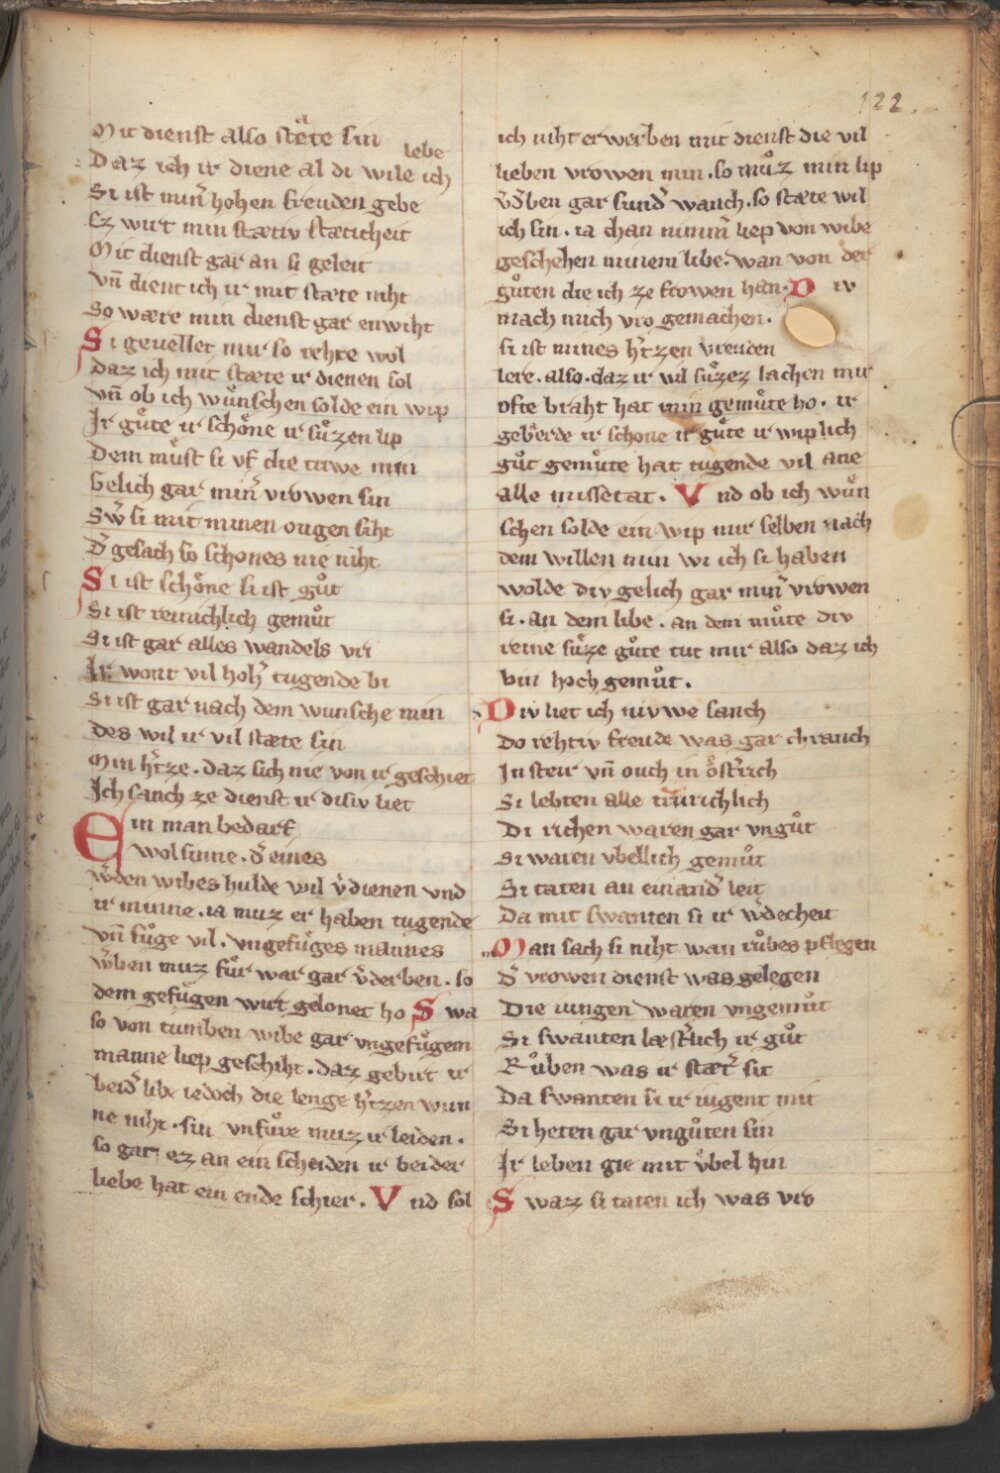 122.
Mit dienst also stęte sin
lebe
Daz ich ir diene al di wile ich
Si ist min̄ hohen freuden gebe
Ez wirt min stætiv stæticheit
Mit dienst gar an si geleit
vn̄ dient ich ir mit stæte niht
So wære min dienst gar enwiht
Si geuellet mir so rehte wol
daz ich mit stæte ir dienen sol
vn̄ ob ich wůnschen solde ein wip
Ir gůte ir schoͤne ir sůzen lip
Dem můst si vf die triwe min
Gelich gar min̄ vrowen sin
Sw̄ si mit minen ougen siht
D̄ gesach so schones nie niht
Si ist schoͤne si ist gůt
Si ist reinichlich gemůt
Si ist gar alles wandels vri
Ir wont vil hoh̄ tugende bi
Si ist gar nach dem wunsche min
des wil ir vil stæte sin
Min h̄tze . daz sich nie von ir geschiet
Ich sanch ze dienst ir disiv liet
Ein man bedarf
wol sinne . d̄ eines
w̄den wibes hulde wil v̄dienen vnd
ir minne . ia muz er haben tugende
vn̄ fůge vil . vngefůges mannes
w̄ben muz fůr war gar v̄derben . so
dem gefůgen wirt gelonet ho Swa
so von tumben wibe gar vngefůgem
manne liep geschiht . daz gebirt ir
beid̄ libe iedoch die lenge h̄tzen wun
ne niht . sin vnfůre muz ir leiden .
so gar ez an ein scheiden ir beider
liebe hat ein ende schier . Vnd sol
ich niht erwerben mit dienst die vil
lieben vrowen min . so můz min lip
v̄d̄ben gar sund̄ wanch . so stæte wil
ich sin . ia chan nimm̄ liep von wibe
geschehen minem libe . wan von der
gůten die ich ze frowen han . Div
mach mich vro gemachen .
si ist mines h̄tzen vreuden
lere . also . daz ir vil sůzez lachen mir
ofte braht hat min gemůte ho . ir
gebęrde ir schone ir gůte ir wiplich
gůt gemůte hat tugende vil ane
alle missetat . Vnd ob ich wůn
schen solde ein wip mir selben nach
dem willen min wi ich si haben
wolde div gelich gar min̄ vrowen
si . an dem libe . an dem můte div
reine sůze gůte tut mir also daz ich
bin hoch gemůt .
Div liet ich nivwe sanch
do rehtiv freude was gar chranch
In steir vn̄ ouch in oͤst̄rich
Si lebten alle trůrichlich
Di richen waren gar vngůt
Si waren vbellich gemůt
Si taten an einand̄ leit
Da mit swanten si ir w̄decheit
Man sach si niht wan růbes pflegen
D̄ vrowen dienst was gelegen
Die iungen waren vngemůt
Si swanten læst̄lich ir gůt
Růben was ir stæt̄ sit
Da swanten si ir iugent mit
Si heten gar vngůten sin
Ir leben gie mit v̊bel hin
Swaz si taten ich was vro